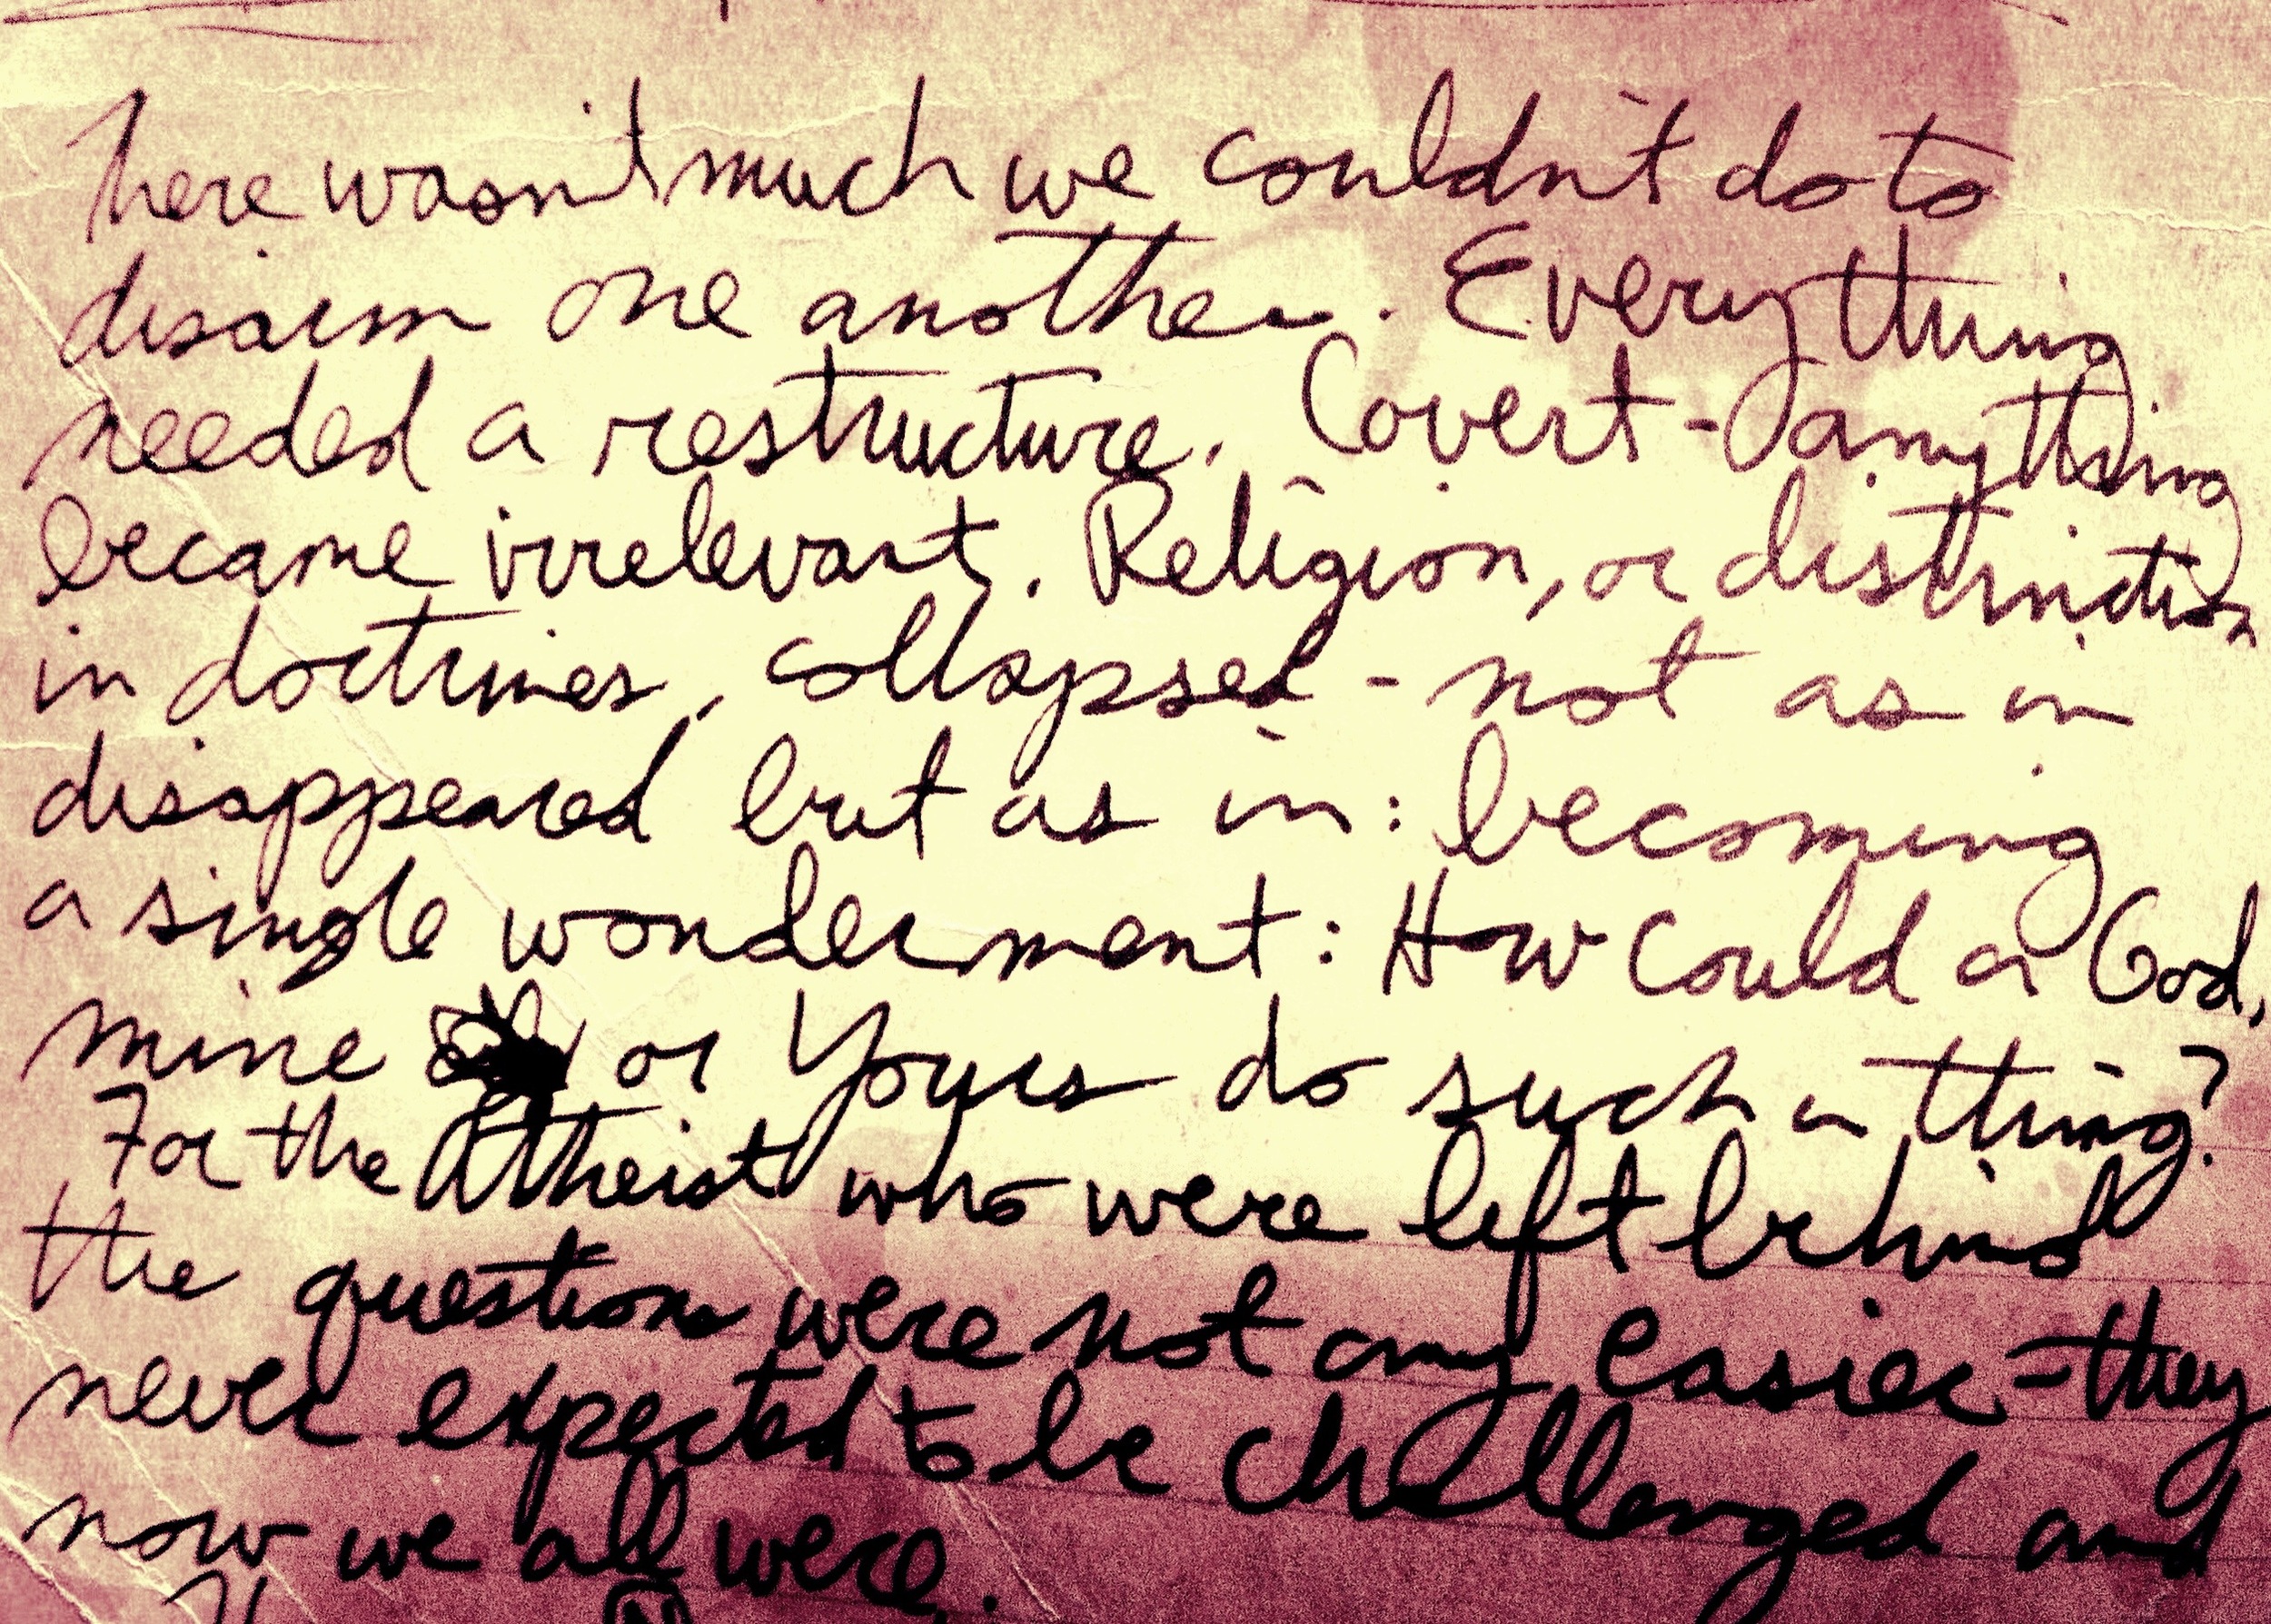 There wasn't much we couldn't do to
disarm one another. Everything
needed a restructure. Covert-anything
became irrelevant. Religion, or distinction
in doctrines, collapsed - not as in
disappeared but as in: becoming
a single wonderment: How could a God,
mine or Yours do such a thing?
For the Atheist who were left behind
the questions were not any easier - they
never expected to be challenged and
now we all were.